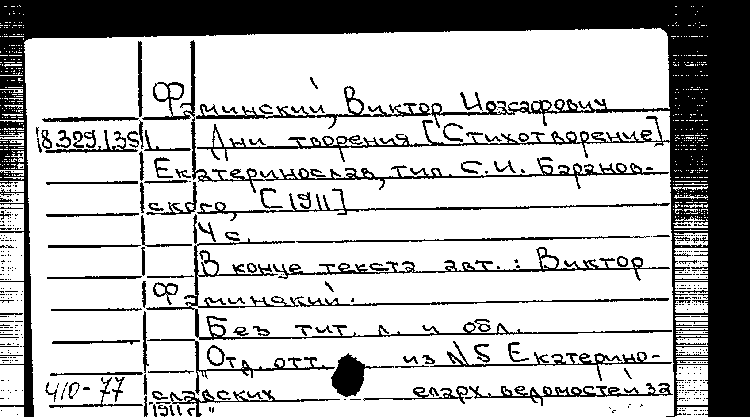 Фаминский, Виктор Иоасафович
18.329.135 1. Дни творения [Стихотворение]
Екатеринослав, тип. С.И. Баранов-
ского, [1911]
4 с.
В конце текста авт.: Виктор
Фаминский.
Без тит. л. и обл.
"Отд. отт. из N5 Екатерино-
410-77 славских епарх. ведомостей за
1911 г."